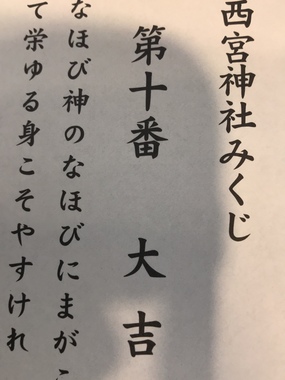 西宮神社みくじ
第十番　大吉
なほび神のなほびにまがこ
て栄ゆる身こそやすけれ